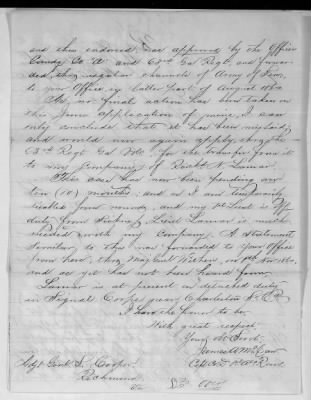 and then endorsed was approved by the Officer
Comdg Co "A" and 63rd Ga Regt, and forwar-
ded, thro regular channels of Army of Tenn,
to your Office, in latter part of August
As no final action has been taken on
this application of mine, I can
only conclude that it has been mislaid;
and would now again apply, thro the
63rd Regt Ga Vols for the transfer from
to my Company, of Lamar
This case has now been pending over
ten (10) months; and as I am temporarily
disabled from wounds, and my 1st Lieut is off
duty from sickness, Lieut Lamar is much
needed with my Company. A statement
similar to this was forwarded to your Office
from here, thro Maj Genl Withers, on 1st Nov 1864,
and as yet has not been heard from.
Lamar is at present on detached duty
in Signal Corps, near Charleston S. Ca
I have the honor to be,
With great respect,
Your Ob Servt,
James
Adjt Genl S. Cooper
Richmond
Va